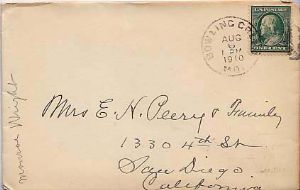 BOWLING GR
AUG
6
1 PM
1910
MO.
U.S. POSTAGE
ONE CENT
Mrs E. N. Peery & Family
1330 4th St
San Diego.
California
Monroe Wright